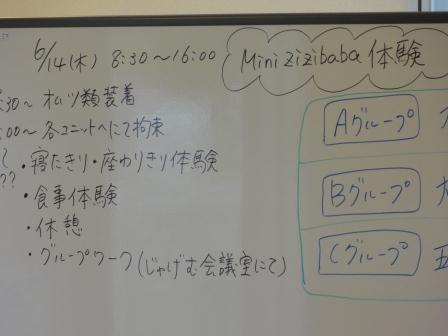 6/14(木) 8:30～16:00
Mini zizibaba 体験
:30～ オムツ類装着
:00～ 各ユニットへにて拘束
??
・寝たきり・座わりきり体験
・食事体験
・休憩
・グループワーク(じゃげむ会議室にて)
Aグループ
Bグループ
Cグループ 五